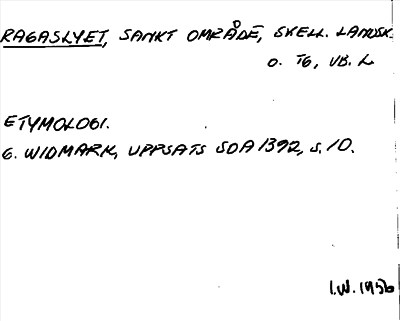 RAGASLYET, SANKT OMRÅDE, SKELL. LANDSK.
O. TG, VB. L.
ETYMOLOGI.
G. WIDMARK, UPPSATS SOA 1392, S. 10.
I.W. 1956